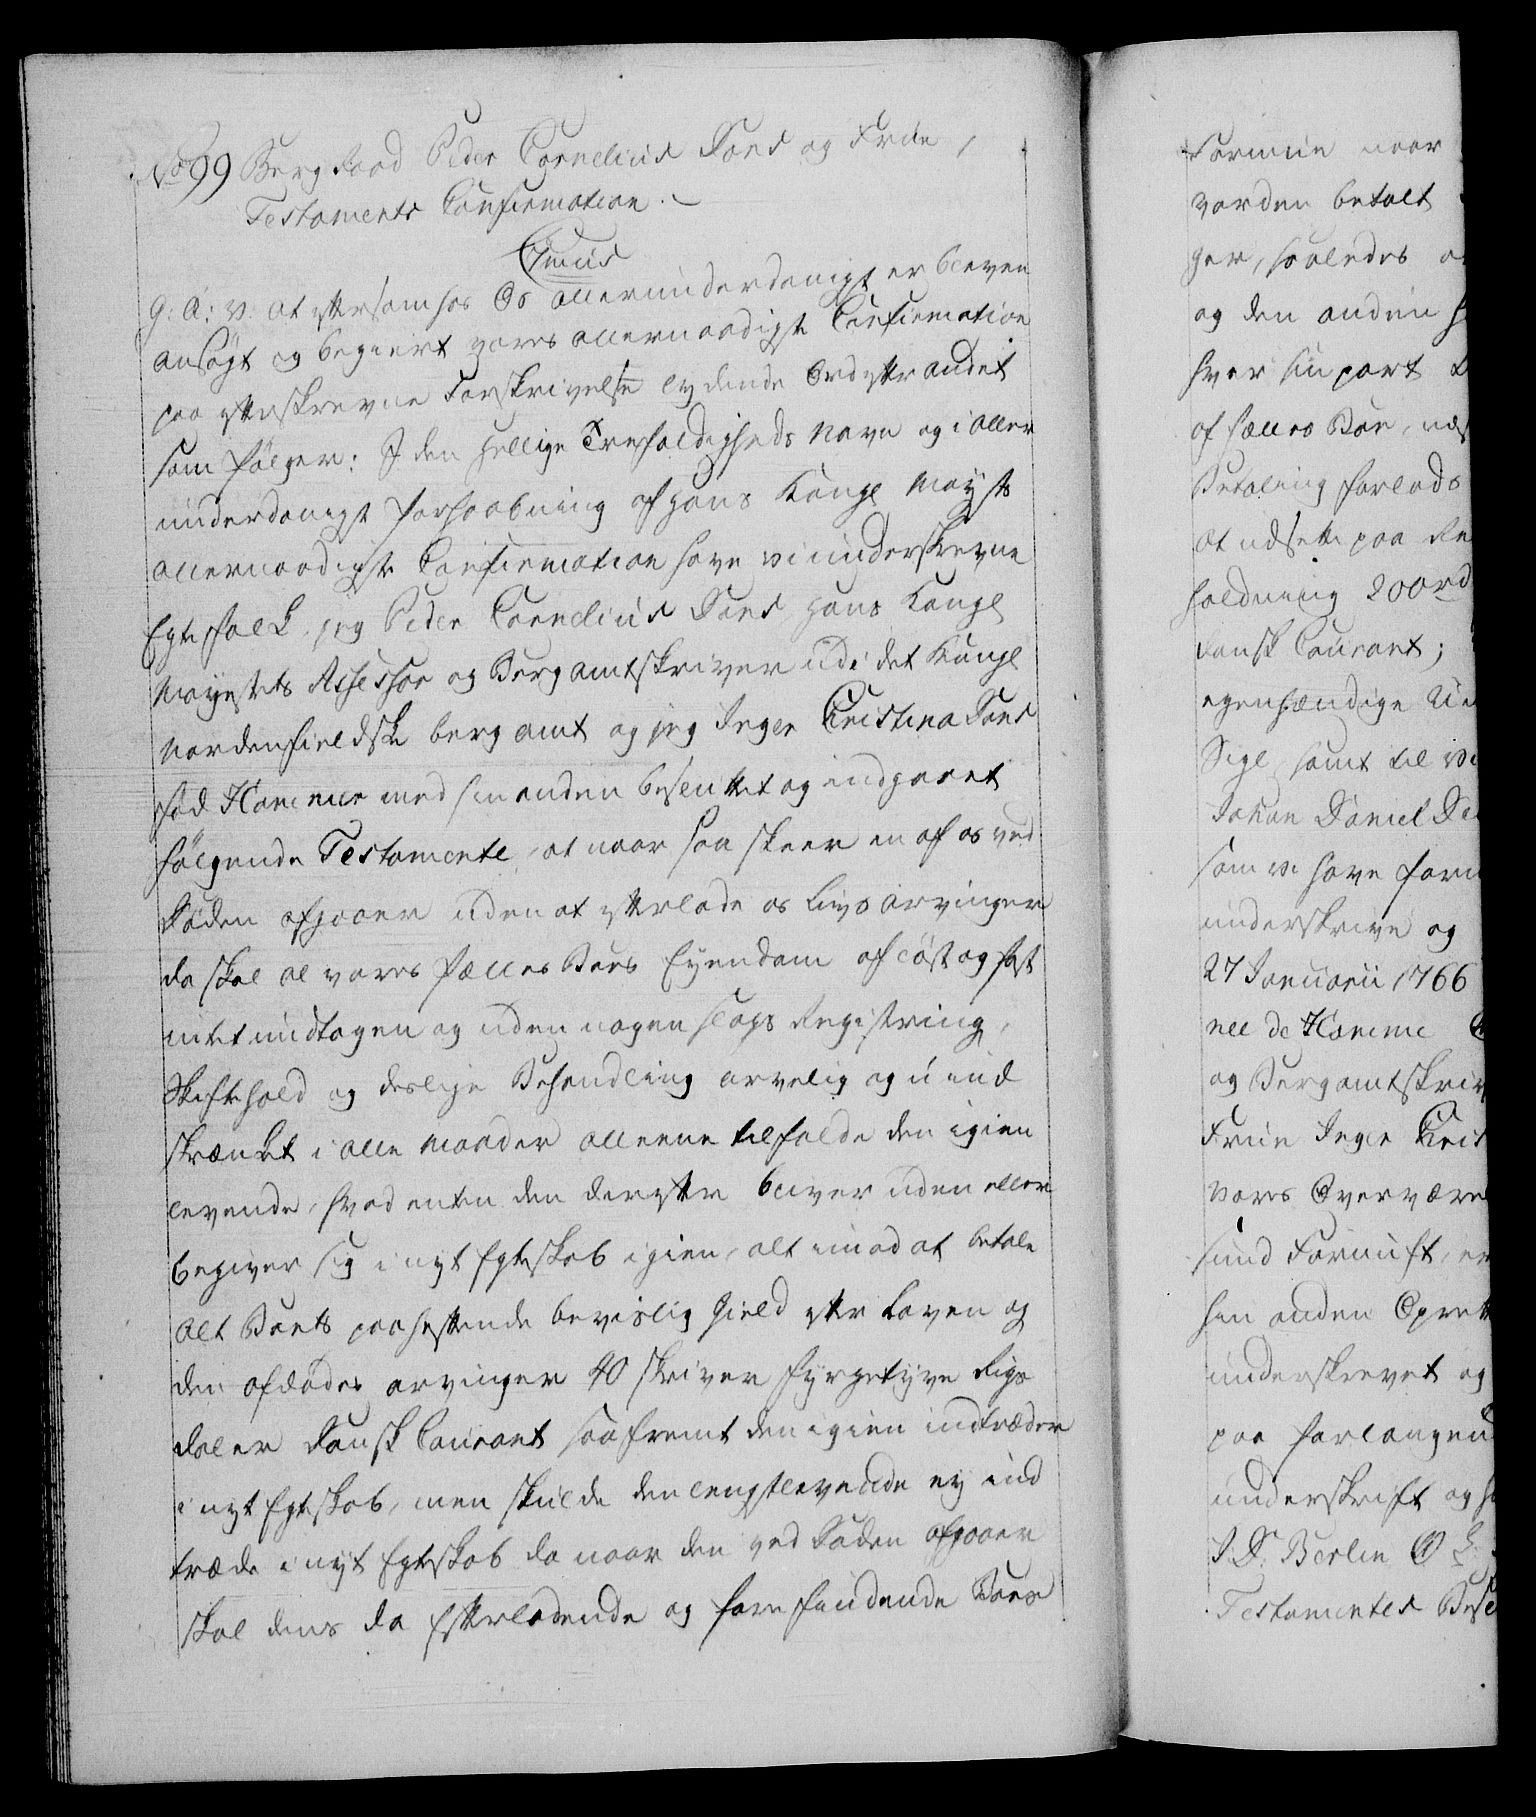 No 99 Berg Raad Peder Cornelius Dons og Frue,
Testaments Confirmation.
C7mus
G: A: V: at eftersom hos Os allerunderdanigst er bleven
ansögt og begiert vores allernaadigste Confirmation
paa efterskrevne Forskrivelse lydende Ord efter andet
som fölger: I den hellige Trefoldigheds Navn og i aller
underdanigst forhaabning af Hans Kongl Mayts
allernaadigste Confirmation have vi underskrevne
Egtefolk, jeg Peder Cornelius Dons, Hans Kongl
Mayestets Assessor og Bergamtskriver udi det Kongl
Nordenfieldske berg amt og jeg Inger Christina Dons
föd Hammer med hin anden besluttet og indgaaet
fölgende Testamente, at naar saa skeer en af os ved
Döden afgaaer uden at efterlade os Livs arvinger
da skal al vores fælles Boes Eyendom af löst og fast
intet undtagen og uden nogen slags Registring,
Skiftehold og deslige Behandling arvelig og uind
skrænket i alle Maader alleene tilfalde den igien
levende, hvad enten den derefter bliver uden eller
begiver sig i nyt Egteskab igien, alt imod at betale
alt Boets paaheftende bevislig Gield efter Loven og
den afdödes arvinger 40 skriver fyrgetyve Rigs
daler dansk Courant saafremt den igien indtræder
i nyt Egteskab, men skulde den lengstlevende ey ind
træde i nyt Egteskab da naar den ved Döden afgaaer
skal dens da Efterladende og forefindende Boes
Formue naar
vorden betalt
ger, saaledes
og den anden
hver sin part
af fælles Boe,
Betaling forlods
at udsette paa
holdning 200 rd
dansk Courant;
egenhændige
Sigl, samt til
Johan Daniel
som vi have
underskrive og
27 Januarii 1766
née de Hamme
og Bergamtskriv
Frue Inger
vores Overvære
sund Fornuft,
hin anden Oprett
underskrevet og
paa forlangen
underskrift og
I D: Berlin
Testamentes